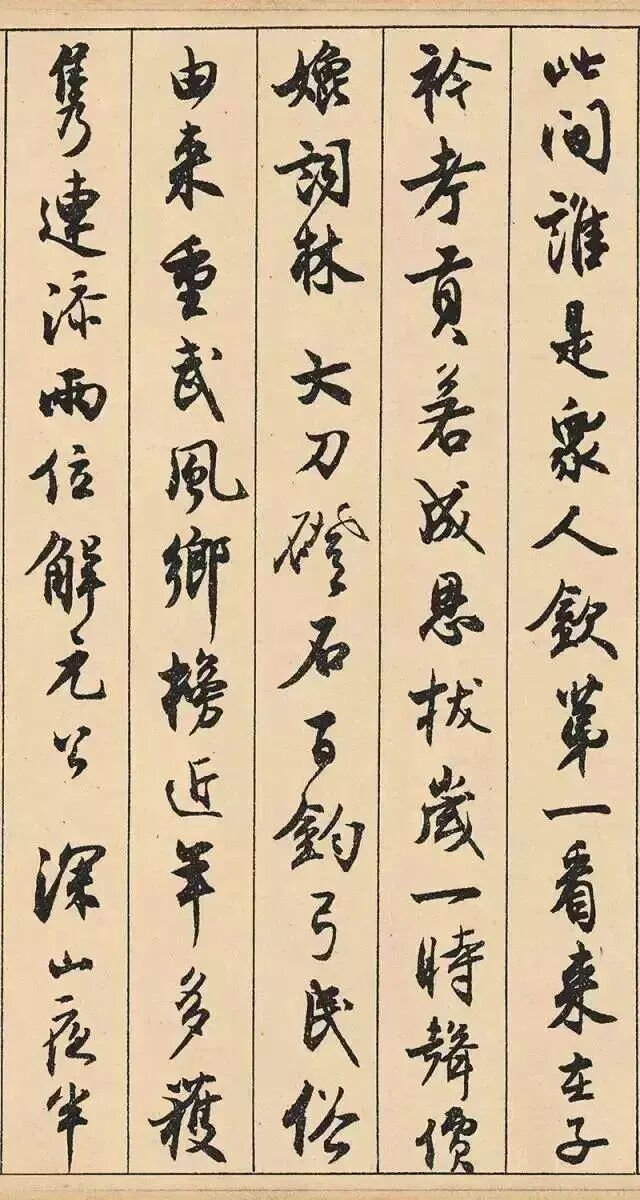 此间誰是眾人欽第一看来在子
衿考貢若成恩拔歲一時聲價
詞林 大刀磴石百鈞弓民俗
由来重武風鄉榜近年多穫
隽連添兩位解元公 深山夜半